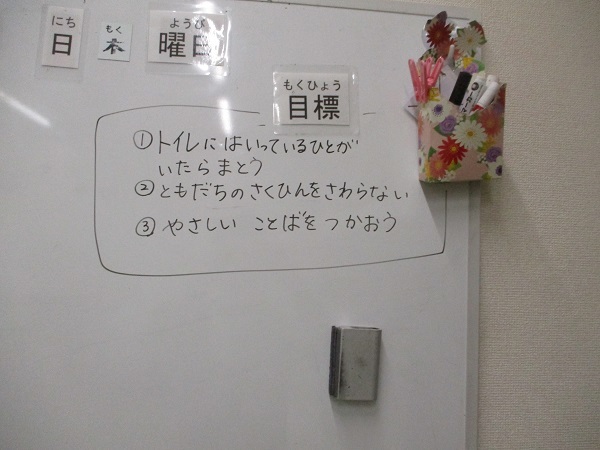 にち
日
もく
木
ようび
曜日
もくひょう
目標
①トイレにはいっているひとが
いたらまとう
②ともだちのさくひんをさわらない
③やさしい ことばをつかおう